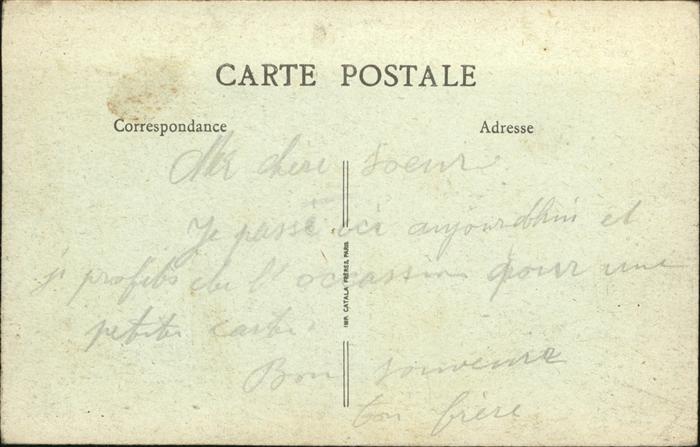 CARTE POSTALE
Correspondance
Adresse
Ma chère soeur
Je passe ici aujourdhui et
je profite de l'occassion pour une
petite carte.
Bon souvenir
ton frère
IMP. CATALA FRÈRES, PARIS